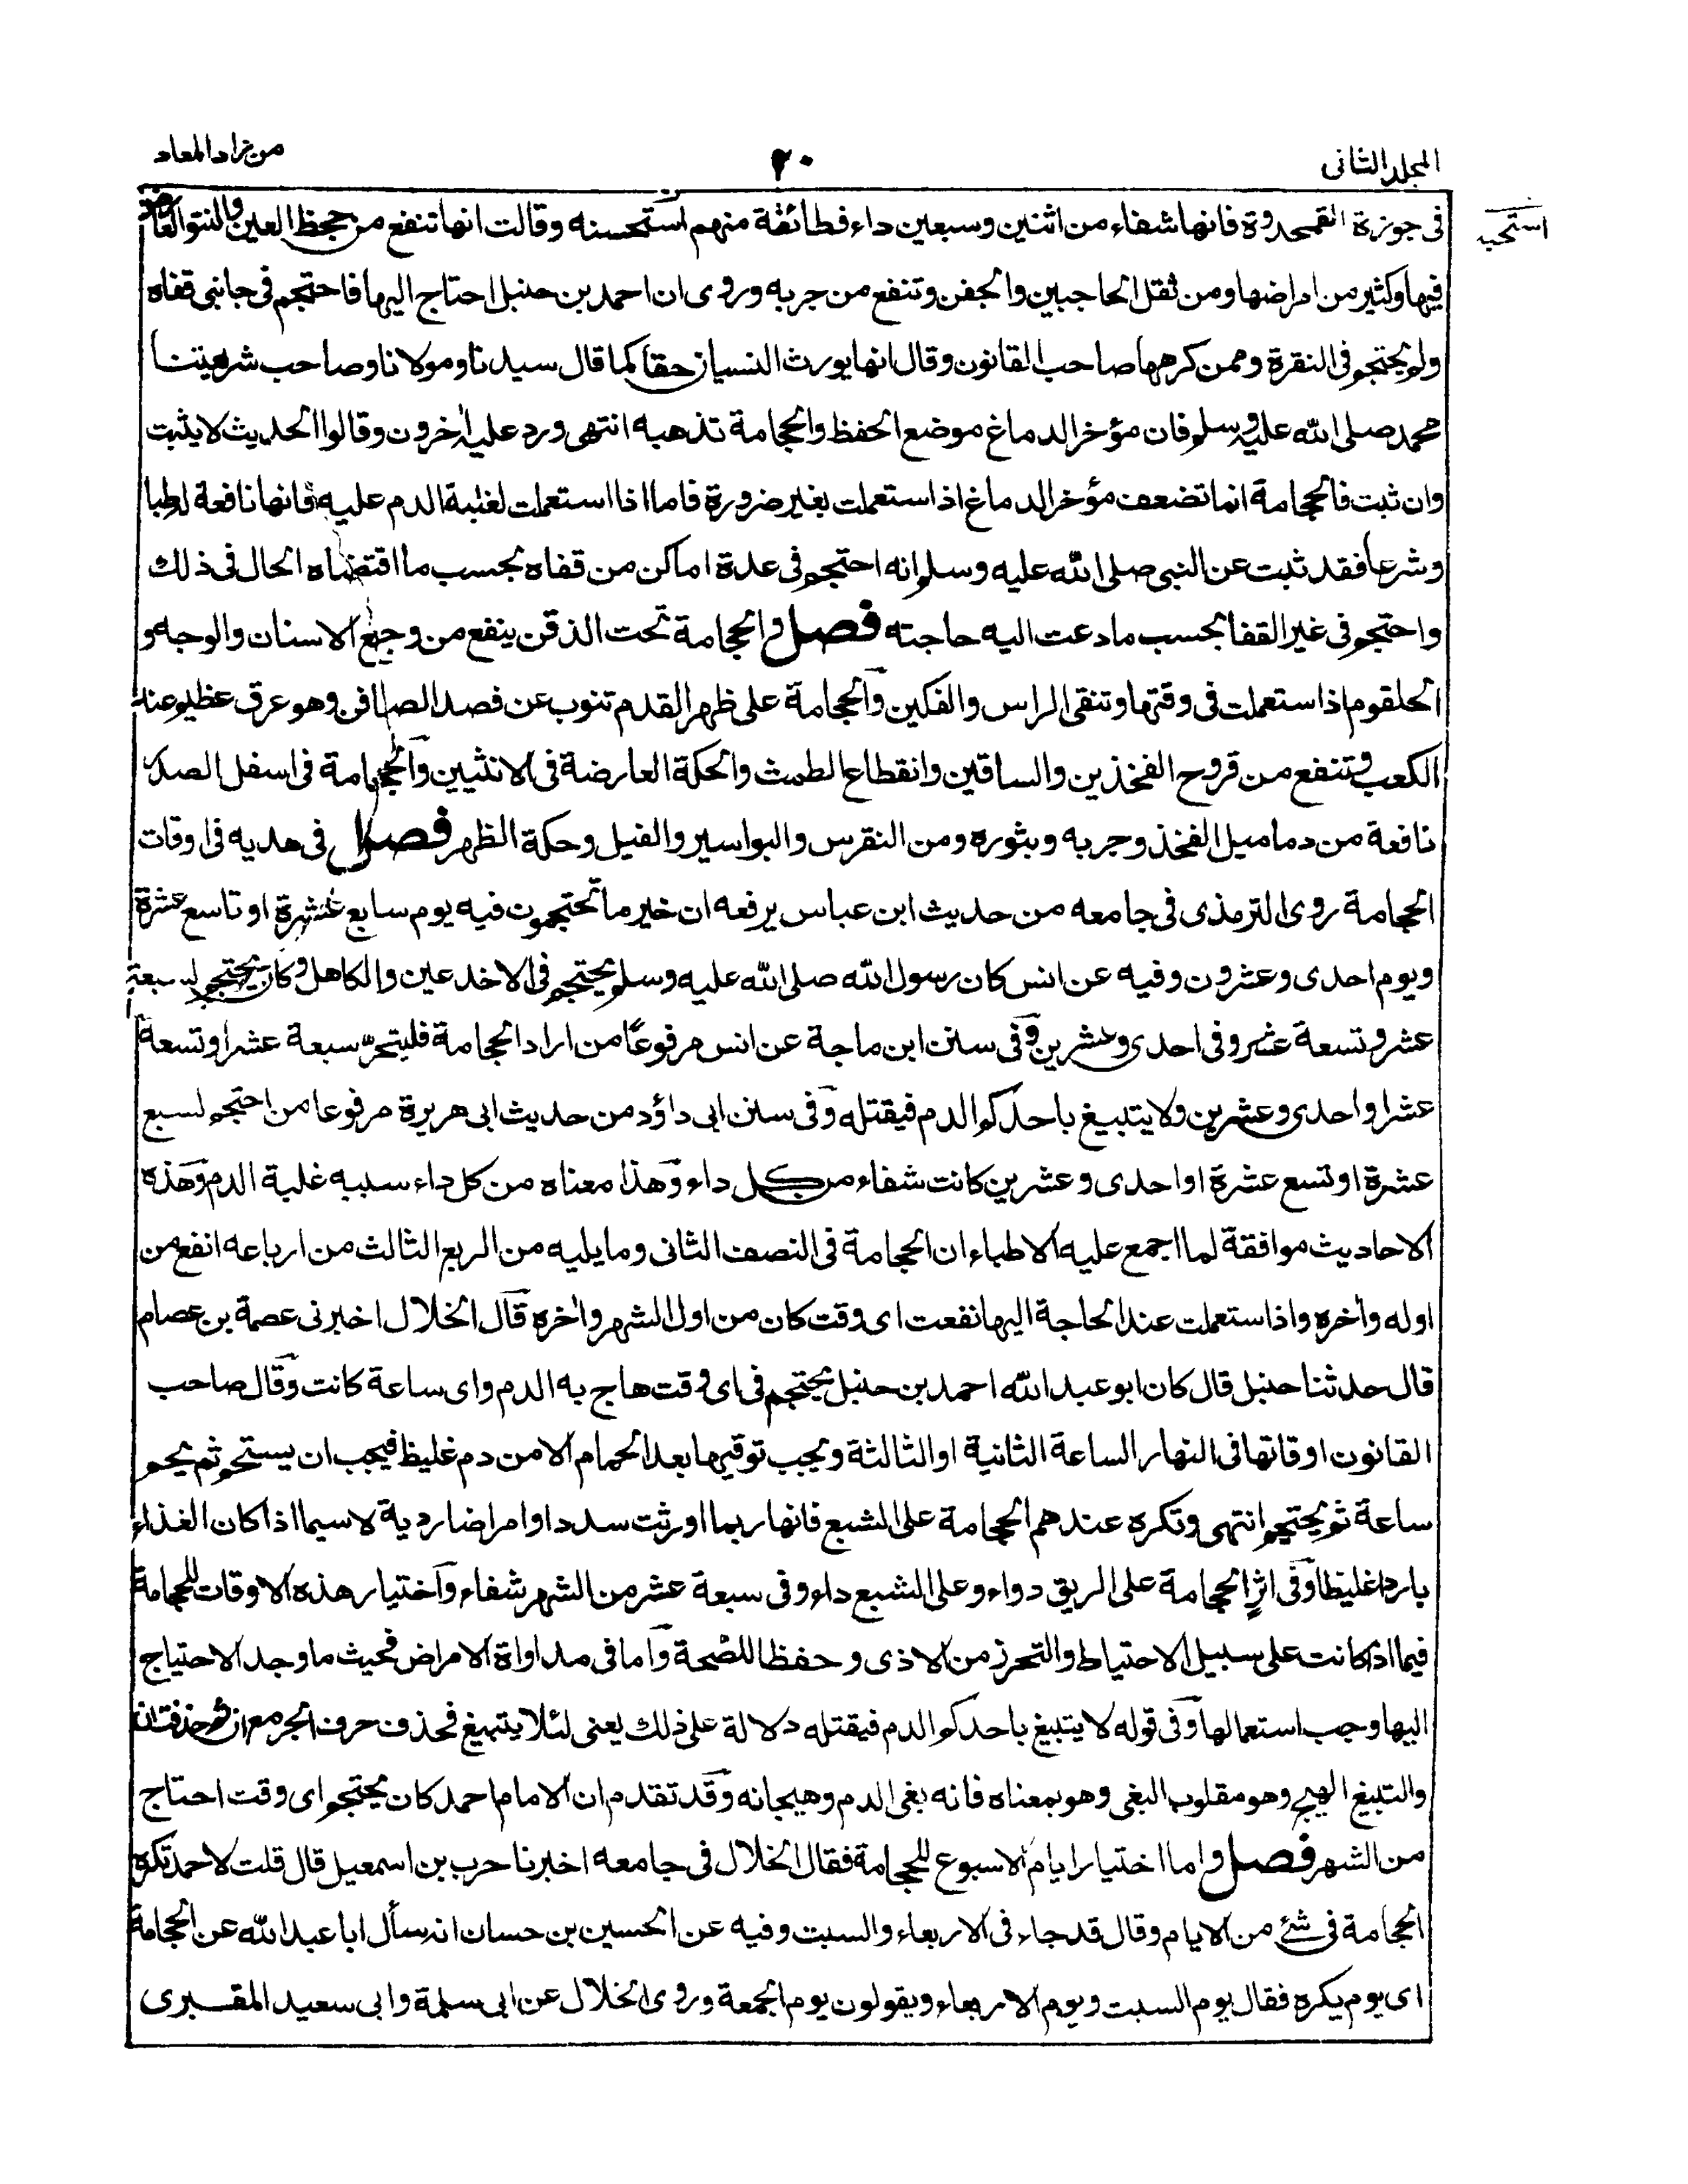 المجلد الثانى
٢٠
من زاد المعاد
استحبه
فى جوزة القمحدوة فانها شفاء من اثنين وسبعين داء فطائفة منهم استحسنه وقالت انها تنفع من جحظ العين والنتو العارض
فيها وكثير من امراضها ومن ثقل الحاجبين والجفن وتنفع من جربه وروى ان احمد بن حنبل احتاج اليها فاحتجم فى جانبى قفاه
ولم يحتجم فى النقرة وممن كرهها صاحب القانون وقال انها يورث النسيان حقا كما قال سيدنا ومولانا وصاحب شريعتنا
محمد صلى الله عليه وسلم فان مؤخر الدماغ موضع الحفظ والحجامة تذهبه انتهى ورد عليه اٰخرون وقالوا الحديث لا يثبت
وان ثبت فالحجامة انما تضعف مؤخر الدماغ اذا استعملت بغير ضرورة فاما اذا استعملت لغلبة الدم عليه فانها نافعة له طبا
وشرعا فقد ثبت عن النبى صلى الله عليه وسلم انه احتجم فى عدة اماكن من قفاه بحسب ما اقتضاه الحال فى ذلك
واحتجم فى غير القفا بحسب ما دعت اليه حاجته فصل والحجامة تحت الذقن ينفع من وجع الاسنان والوجه و
الحلقوم اذا ستعملت فى وقتها وتنقى الراس والفكين والحجامة على ظهر القدم تنوب عن فصد الصافن وهو عرق عظيم عند
الكعب وتنفع من قروح الفخذين والساقين وانقطاع الطمث والحكة العارضة فى الانثيين والحجامة فى اسفل الصدر
نافعة من دماميل الفخذ وجربه وبثوره ومن النقرس والبواسير والفيل وحكة الظهر فصل فى هديه فى اوقات
الحجامة روى الترمذى فى جامعه من حديث ابن عباس يرفعه ان خير ما تحتجمون فيه يوم سابع عشرة او تاسع عشرة
ويوم احدى وعشرون وفيه عن انس كان رسول الله صلى الله عليه وسلم يحتجم فى الاخدعين والكاهل وكان يحتجم لسبعة
عشر وتسعة عشر وفى احدى وعشرين وفى سنن ابن ماجة عن انس مرفوعًا من اراد الحجامة فليتحرّ سبعة عشر او تسعة
عشر او احدى وعشرين ولا يتبيغ باحدكم الدم فيقتله وفى سنن ابى داؤد من حديث ابى هريرة مرفوعا من احتجم لسبع
عشرة او تسع عشرة او احدى وعشرين كانت شفاء من كل داء وهذا معناه من كل داء سببه غلبة الدم وهذه
الاحاديث موافقة لما اجمع عليه الاطباء ان الحجامة فى النصف الثانى وما يليه من الربع الثالث من ارباعه انفع من
اوله واٰخره واذا ستعملت عند الحاجة اليها نفعت اى وقت كان من اول الشهر واٰخره قال الخلال اخبرنى عصمة بن عصام
قال حدثنا حنبل قال كان ابو عبد الله احمد بن حنبل يحتجم فى اى وقت هاج به الدم واى ساعة كانت وقال صاحب
القانون اوقاتها فى النهار الساعة الثانية او الثالثة ويجب توقيها بعد الحمام الا من دم غليظ فيجب ان يستحم ثم يجم
ساعة ثم يحتجم انتهى وتكره عندهم الحجامة على الشبع فانها ربما اورثت سددا وامراضا ردية لا سيما اذا كان الغذاء
باردا غليظا وفى اثرٍ الحجامة على الريق دواء وعلى الشبع داء وفى سبعة عشر من الشهر شفاء واختيار هذه الاوقات للحجامة
فيما اذا كانت على سبيل الاحتياط والتحرز من الاذى وحفظا للصحة واما فى مداواة الامراض فحيث ما وجد الاحتياج
اليها وجب استعمالها وفى قوله لا يتبيغ باحدكم الدم فيقتله دلالة على ذلك يعنى لئلا يتبيغ فحذف حرف الجر مع ان ثم حذفت ان
والتبيغ الهيج وهو مقلوب البغى وهو بمعناه فانه بغى الدم وهيجانه وقد تقدم ان الامام احمد كان يحتجم اى وقت احتاج
من الشهر فصل واما اختيار ايام الاسبوع للحجامة فقال الخلال فى جامعه اخبرنا حرب بن اسمعيل قال قلت لاحمد تكره
الحجامة فى شئ من الايام وقال قد جاء فى الاربعاء والسبت وفيه عن الحسين بن حسان انه سأل ابا عبد الله عن الحجامة
اى يوم يكره فقال يوم السبت ويوم الاربعاء ويقولون يوم الجمعة وروى الخلال عن ابى سلمة وابى سعيد المقبرى